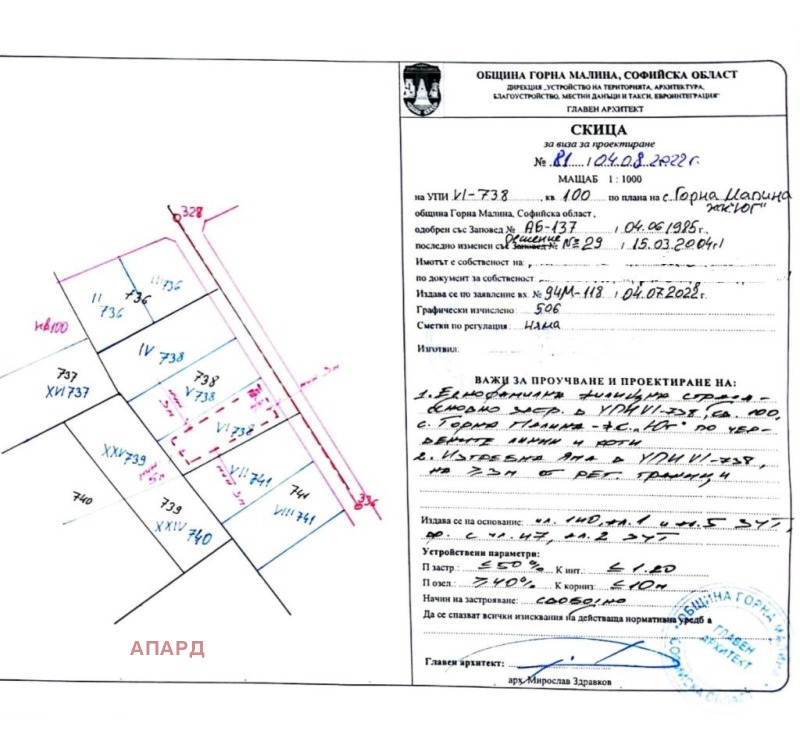 ОБЩИНА ГОРНА МАЛИНА, СОФИЙСКА ОБЛАСТ
ДИРЕКЦИЯ „УСТРОЙСТВО НА ТЕРИТОРИЯТА, АРХИТЕКТУРА,
БЛАГОУСТРОЙСТВО, МЕСТНИ ДАНЪЦИ И ТАКСИ, ЕВРОИНТЕГРАЦИЯ"
ГЛАВЕН АРХИТЕКТ
СКИЦА
за виза за проектиране
№ 81 / 04.08.2022г.
МАЩАБ 1 : 1000
на УПИ VI-738, кв 100 по плана на с. Горна Малина
жк "Юг"
община Горна Малина, Софийска област,
одобрен със Заповед № АБ-137 / 04.06.1985г.
последно изменен със Заповед № Решение №29 / 15.03.2004г
Имотът е собственост на:
по документ за собственост
Издава се по заявление вх. № 94М-118 / 04.07.2022г.
Графически изчислено: 506
Сметки по регулация: няма
Изготвил:
ВАЖИ ЗА ПРОУЧВАНЕ И ПРОЕКТИРАНЕ НА:
1. Еднофамилна жилищна сграда -
основно застр. в УПИ VI-738, кв. 100,
с. Горна Малина - ж.к. "Юг" по чер-
вените линии и коти
2. Изгребна яма в УПИ VI-738,
на ≥3м от рег. граници
Издава се на основание: чл. 140, ал. 1 и ал. 5 ЗУТ,
вр. с чл. 147, ал. 2 ЗУТ
Устройствени параметри:
П застр.: ≤50% К инт.: ≤1.20
П озел.: ≥40% К корниз: ≤10м
Начин на застрояване: свободно
Да се спазват всички изисквания на действаща нормативна уредба
Главен архитект:
арх. Мирослав Здравков
ОБЩИНА ГОРНА МАЛИНА
ГЛАВЕН
АРХИТЕКТ
328
III 736
736
II 736
кв100
IV 738
737
XVI 737
738
V 738
мин 3м
мин 3м
VI 738
XXV 739
мин 5м
мин 3м
VII 741
741
VIII 741
740
739
XXIV 740
336
АПАРД